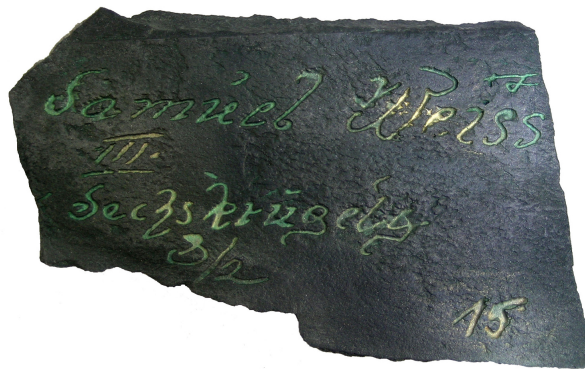 Samuel Weiss
III.
Sechskrügelg
3/2
15